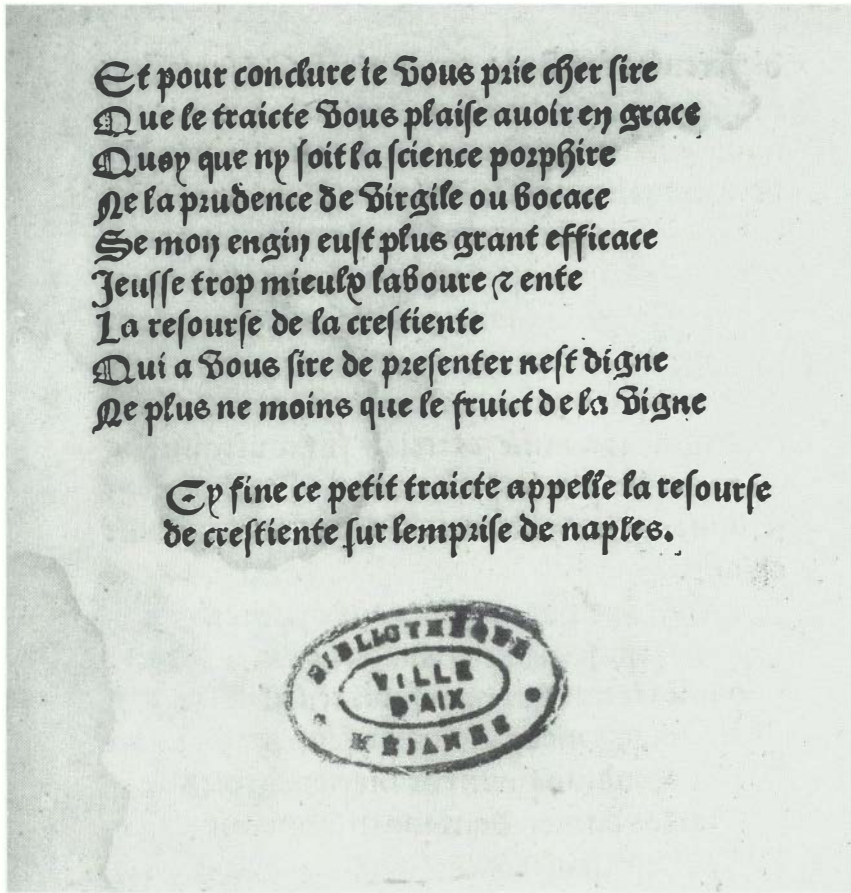 Et pour conclure ie vous prie cher sire
Que le traicte vous plaise auoir en grace
Quoy que ny soit la science porphire
Ne la prudence de virgile ou bocace
Se mon engin eust plus grant efficace
Jeusse trop mieulx laboure ⁊ ente
La resourse de la crestiente
Qui a vous sire de presenter nest digne
Ne plus ne moins que le fruict de la vigne
Cy fine ce petit traicte appelle la resourse
de crestiente sur lemprise de naples.
BIBLIOTHEQUE
VILLE
D'AIX
MÉJANES